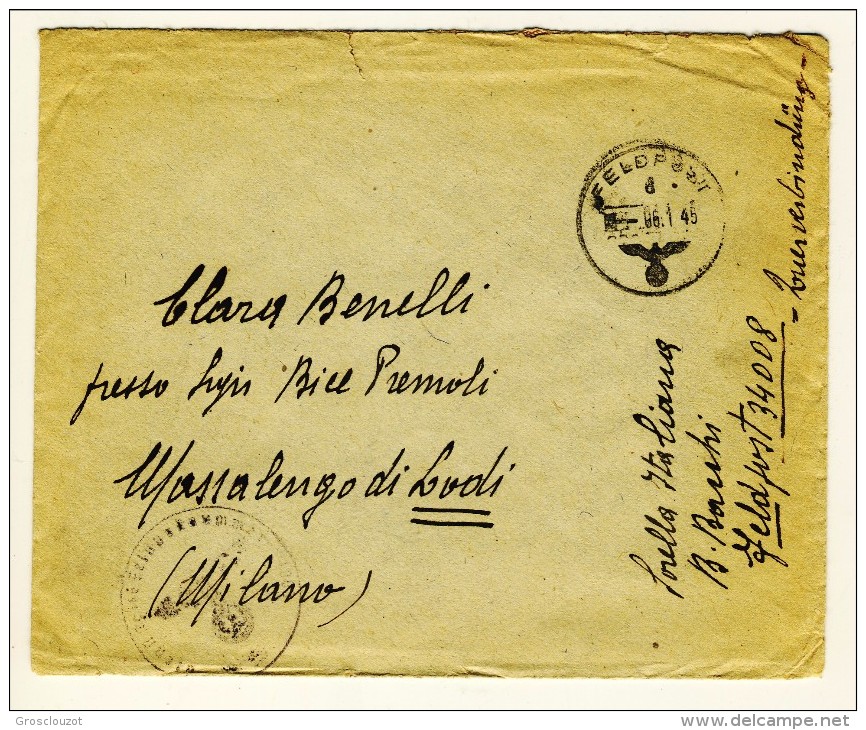 FELDPOST
d
- 06.1 45
Clara Benelli
presso Sigra Bice Premoli
Massalengo di Lodi
(Milano)
Sorella Italiana
B. Bacchi
Feldpost 34008
= Querverbindüng =
Grosclouzot
www.delcampe.net